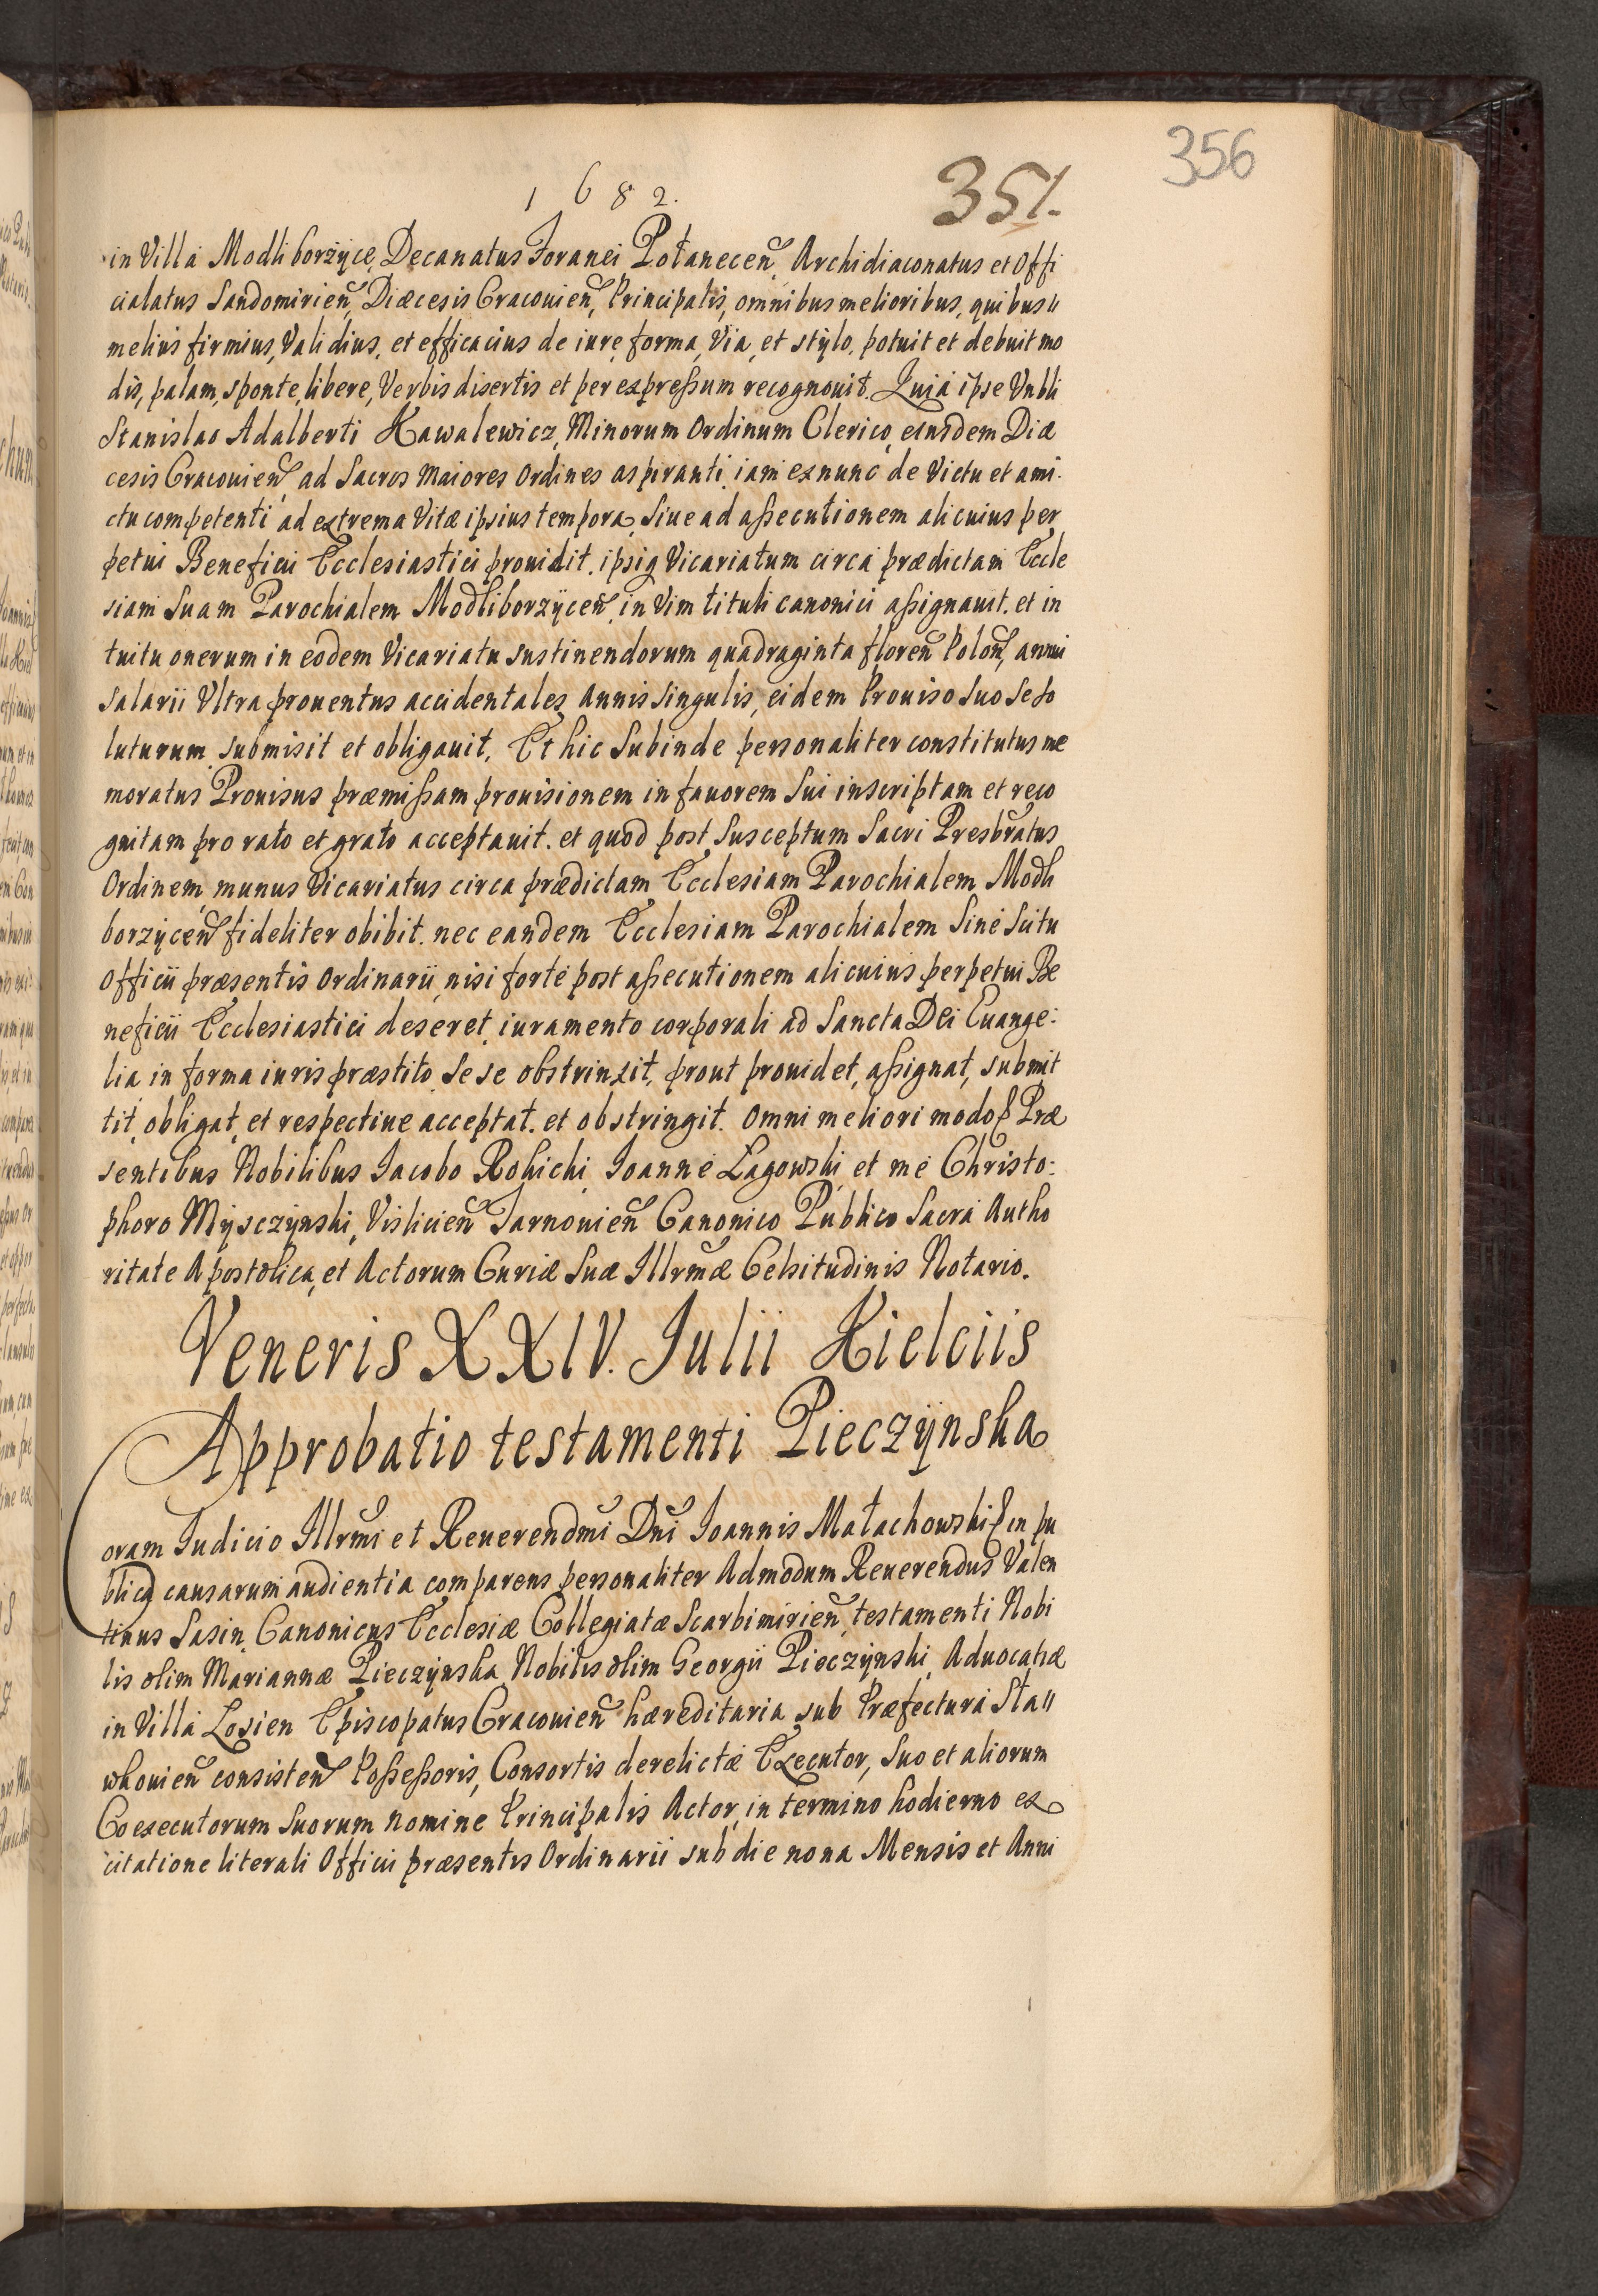 356
351.
1 6 8 2.
in Villa Modliborzÿce, Decanatus Foranei Połanecen̄, Archidiaconatus et Offi
cialatus Sandomirien̄, Diæcesis Cracouien̄, Principalis, omnibus melioribus, quibus〃
melius firmius, Validius, et efficacius de iure, forma, Via, et stÿlo, potuit et debuit mo
dis, palam, sponte, libere, Verbis disertis et per expreßum recognouit. Quia ipse Vnbli
Stanislao Adalberti Kawalewicz, Minorum Ordinum Clerico, eiusdem Diæ
cesis Cracouien̄, ad Sacros Maiores Ordines aspiranti, iam exnunc de Victu et ami
ctu competenti ad extrema Vitæ ipsius tempora, Siue ad aßecutionem alicuius per
petui Beneficii Ecclesiastici prouidit. ipsiq Vicariatum circa prædictam Eccle
siam Suam Parochialem Modliborzÿcen̄, in Vim tituli canonici aßignauit. et in
tuitu onerum in eodem Vicariatu sustinendorum quadraginta floren̄ Polon̄, annui
salarii Vltra prouentus accidentales annis singulis, eidem Prouiso Suo Se so
luturum submisit et obligauit. Et hic Subinde personaliter constitutus me
moratus Prouisus præmißam prouisionem in fauorem Sui inscriptam et reco
gnitam pro rato et grato acceptauit. et quod post Susceptum Sacri Presbr̄atus
Ordinem, munus Vicariatus circa prædictam Ecclesiam Parochialem Modli
borzÿcen̄ fideliter obibit. nec eandem Ecclesiam Parochialem Sine Scitu
Officii præsentis Ordinarii, nisi forte post aßecutionem alicuius perpetui Be
neficii Ecclesiastici deseret, iuramento corporali ad Sancta Dei Euange:
lia in forma iuris præstito, Se se obstrinxit, prout prouidet, aßignat, submit
tit, obligat, et respectiue acceptat. et obstringit. Omni meliori modo Præ
sentibus Nobilibus Iacobo Rokicki, Ioanne Łagowski et me Christo:
phoro Mÿsczÿnski, Vislicien̄ Tarnouien̄ Canonico Publico Sacra Autho
ritate Apostolica, et Actorum Curiæ Suæ Illrm̄æ Celsitudinis Notario.
Veneris XXIV. Iulii Kielciis
Approbatio testamenti Pieczÿnska
Coram Iudicio Illrm̄i et Reuerendm̄i Dn̄i Ioannis Małachowski in pu
blica causarum audientia comparens personaliter Admodum Reuerendus Valen
tinus Sasin, Canonicus Ecclesiæ Collegiatæ Scarbimirien̄, testamenti Nobi
lis olim Mariannæ Pieczÿnska Nobilis olim Georgii Pieczÿnski, Aduocatiæ
in Villa Łosien Episcopatus Cracouien̄ hæreditaria sub Præfectura Sła〃
wkouien̄ consisten̄ Poßeßoris, Consortis derelictæ Executor, Suo et aliorum
Coexecutorum Suorum nomine Principalis Actor, in termino hodierno ex
citatione literali Officii præsentis Ordinarii sub die nona Mensis et Anni